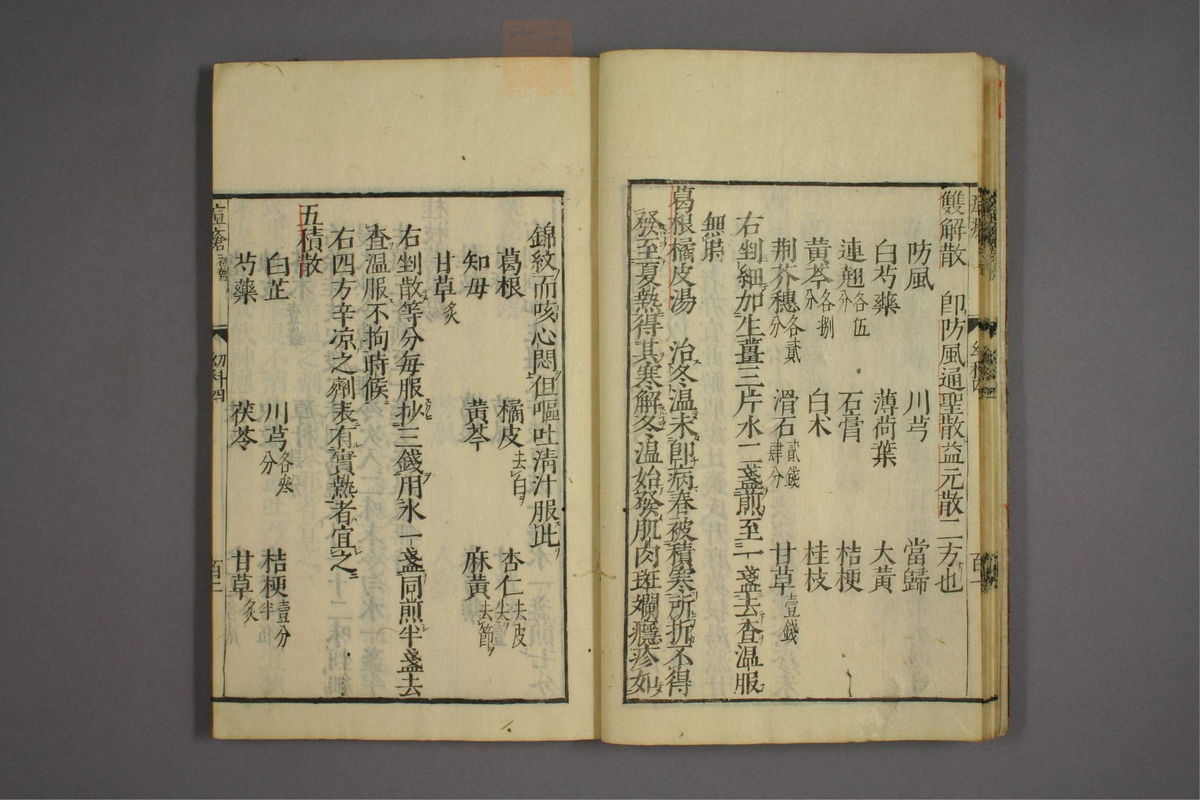 雙解散 卽防風通聖散益元散二方也
防風 川芎 當歸
白芍藥 薄荷葉 大黃
連翹各伍分 石膏 桔梗
黃芩各捌分 白朮 桂枝
荆芥穗各貳分 滑石貳錢肆分 甘草壹錢
右剉細加生薑三片水二盞煎至一盞去查溫服
無時
葛根橘皮湯 治冬溫未卽病春被積寒所折不得
發至夏熱得其寒解冬溫始發肌肉斑斕癮疹如
錦紋而咳心悶但嘔吐清汁服此
葛根 橘皮去白 杏仁去皮尖
知母 黃芩 麻黃去節
甘草炙
右剉散等分每服抄三錢用水一盞同煎半盞去
查溫服不拘時候
右四方辛凉之劑表有實熱者宜之
五積散
白芷 川芎各叁分 桔梗壹分半
芍藥 茯苓 甘草炙
痘瘡 幼科四 百一